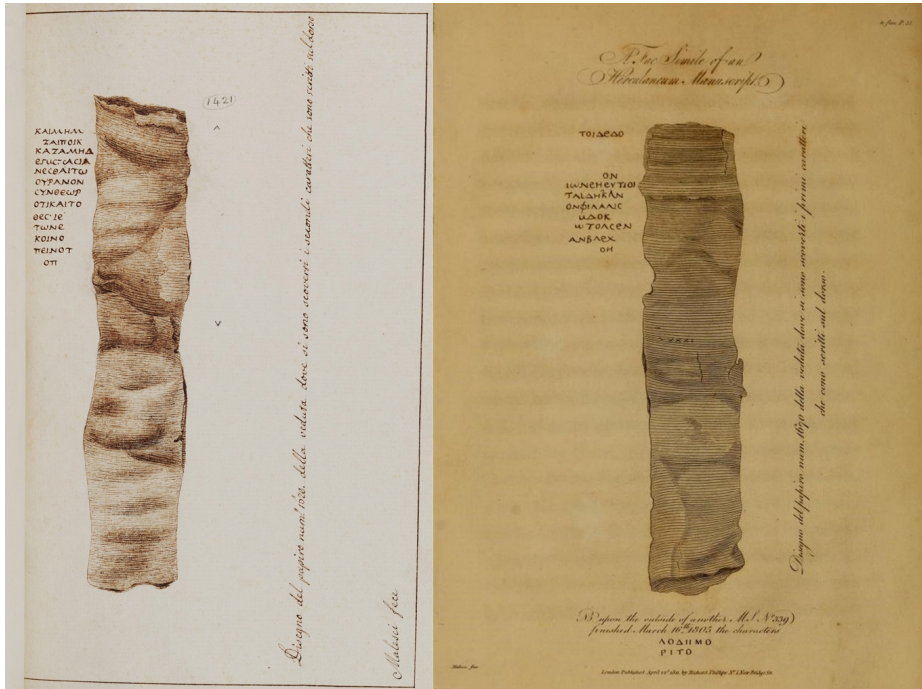 1421
ΚΑΙΜΗΜ
ΖΑΙΠΟΙΚ
ΚΑΖΑΜΗΔ
ΝΕСΘΑΙΤѠ
ΟΥΡΑΝΟΝ
СΥΝΘΕѠΡ
ΟΤΙΚΑΙΤΟ
ΘΕС ΙΕ
ΤѠΝΕ
ΚΟΙΝΟ
ΠΕΙΝΟΤ
ΟΠ
Disegno del papiro num.º 1670. della veduta dove si sono scoverti i secondi caratteri che sono scritti sul dorso
Malesci fece
A Fac Simile of an
Herculaneum Manuscript.
ΤΟΙΔΕΔΟ
ΟΝ
ΤΑΙΔΗΚΑΝ
ΟΝΦΙΛΑΛΙС
ѠΔΟΚ
ѠΤΟΛСΕΝ
ΑΝΒΛΕΧ
ΟΗ
Disegno del papiro num. 1670 della veduta dove si sono scoverti i primi caratteri
che sono scritti sul dorso.
NB upon the outside of another M.S. Nº 339
finished March 16th 1805 the characters
ΛΟΔΗΜΟ
ΡΙΤΟ
London Published April by Richard Phillips Nº 6 New Bridge St.